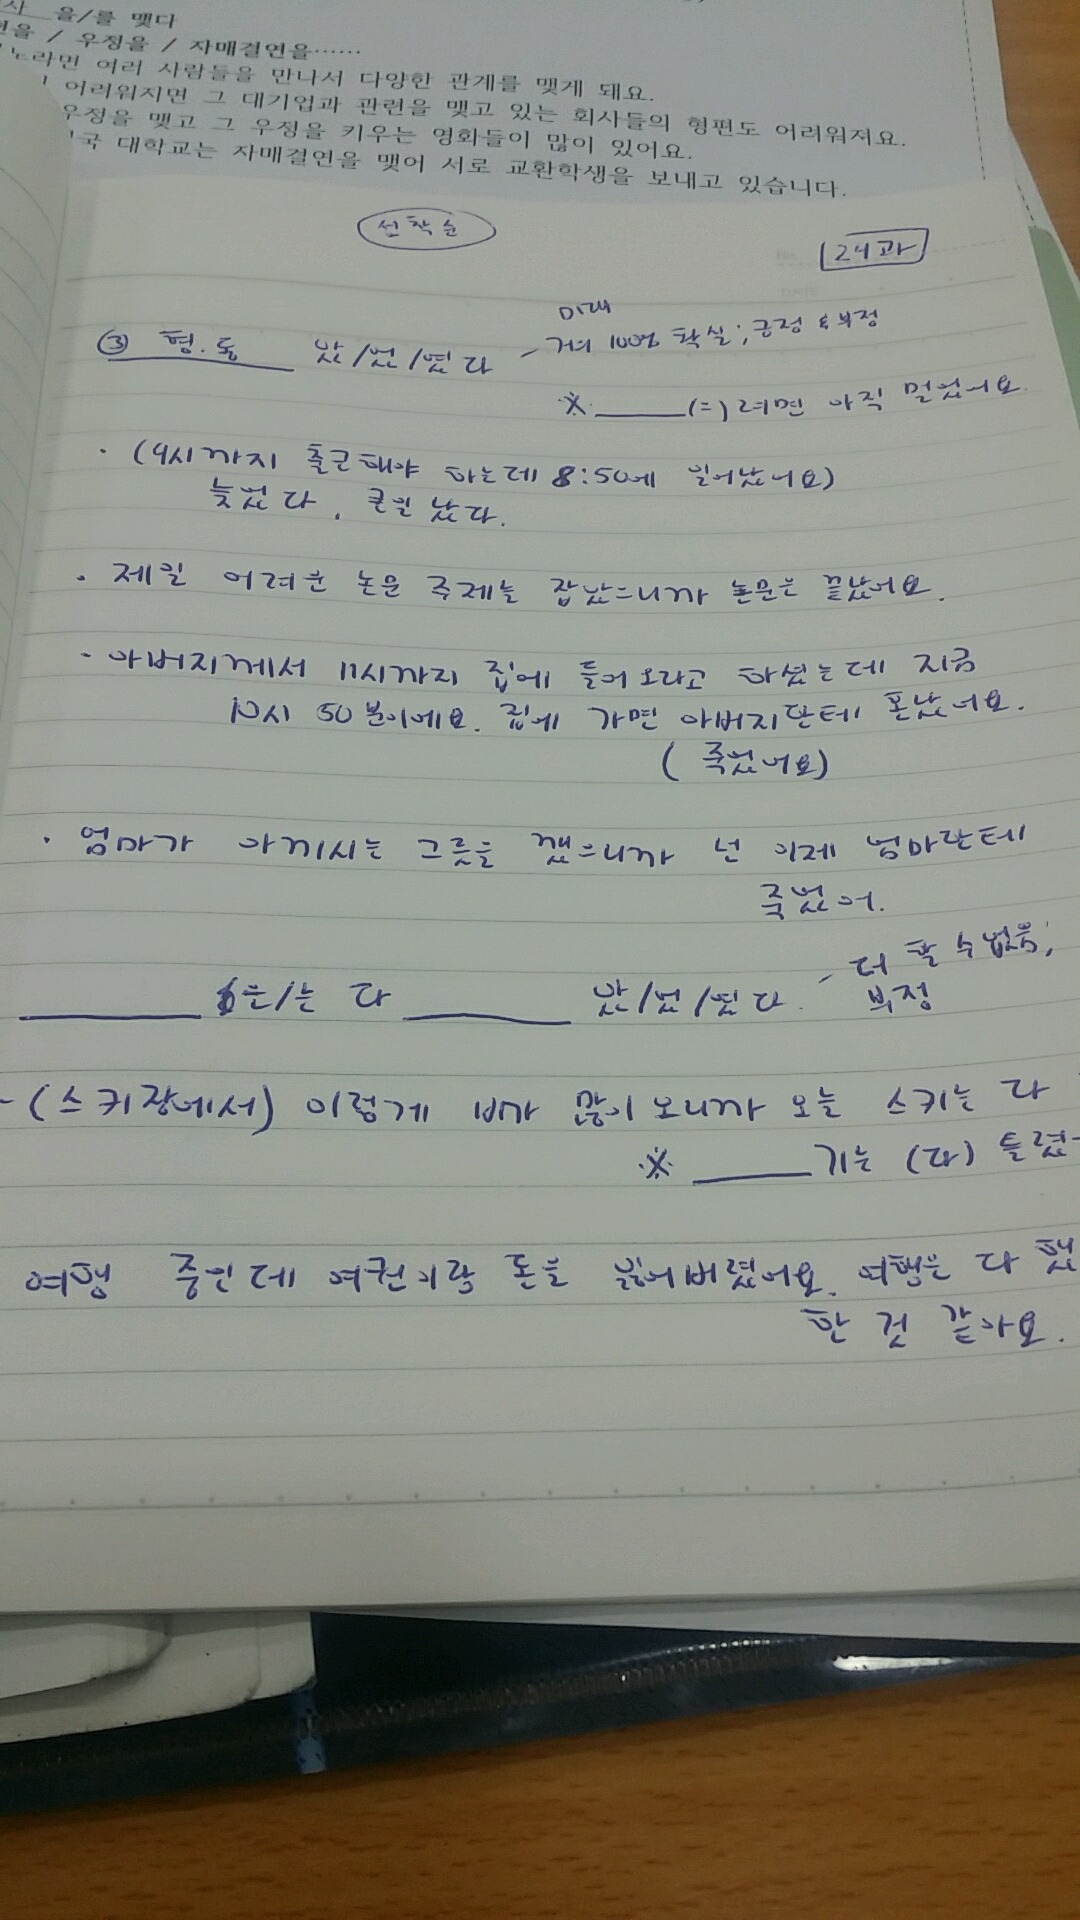 을/를 맺다
/ 우정을 / 자매결연을……
여러 사람들을 만나서 다양한 관계를 맺게 돼요.
어려워지면 그 대기업과 관련을 맺고 있는 회사들의 형편도 어려워져요.
우정을 맺고 그 우정을 키우는 영화들이 많이 있어요.
대학교는 자매결연을 맺어 서로 교환학생을 보내고 있습니다.
선착순
24과
미래
③ 형.동 았/었/였다 - 거의 100% 확실; 긍정 & 부정
※ ______(=)려면 아직 멀었어요.
· (9시까지 출근해야 하는데 8:50에 일어났어요)
늦었다, 큰일 났다.
· 제일 어려운 논문 주제를 잡았으니까 논문은 끝났어요.
· 아버지께서 11시까지 집에 들어오라고 하셨는데 지금
10시 50분이에요. 집에 가면 아버지한테 혼났어요.
(죽었어요)
· 엄마가 아끼시는 그릇을 깼으니까 넌 이제 엄마한테
죽었어.
______ 은/는 다 ______ 았/었/였다. - 더 할 수 없음;
부정
- (스키장에서) 이렇게 비가 많이 오니까 오늘 스키는 다
※ ______기는 (다) 틀렸
여행 중인데 여권이랑 돈을 잃어버렸어요. 여행은 다 했
한 것 같아요.